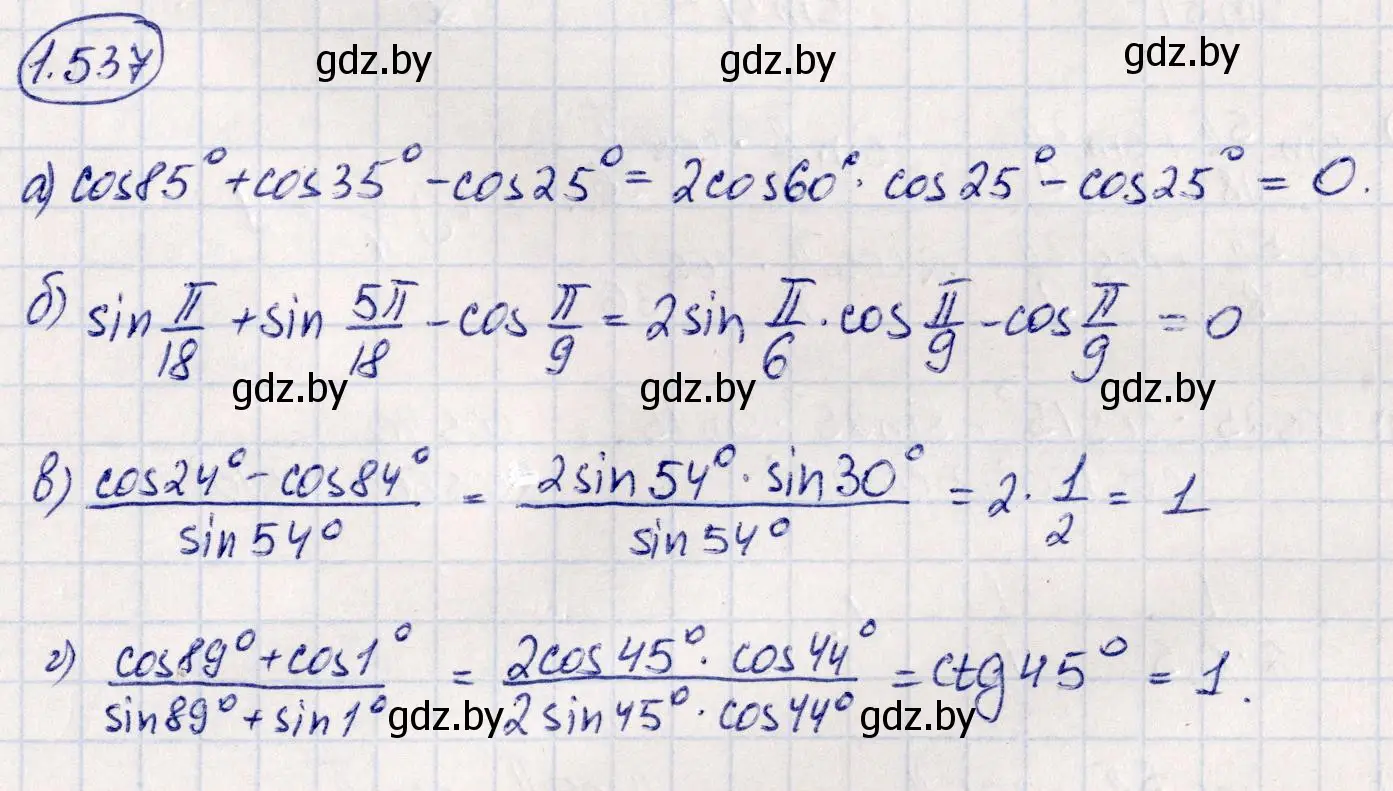 1.537
gdz.by gdz.by gdz.by
а) cos85° + cos35° - cos25° = 2cos60° · cos25° - cos25° = 0.
б) sin π/18 + sin 5π/18 - cos π/9 = 2sin π/6 · cos π/9 - cos π/9 = 0
gdz.by gdz.by gdz.by
в) (cos24° - cos84°)/(sin54°) = (2sin54° · sin30°)/(sin54°) = 2 · 1/2 = 1
г) (cos89° + cos1°)/(sin89° + sin1°) = (2cos45° · cos44°)/(2sin45° · cos44°) = ctg45° = 1.
gdz.by gdz.by